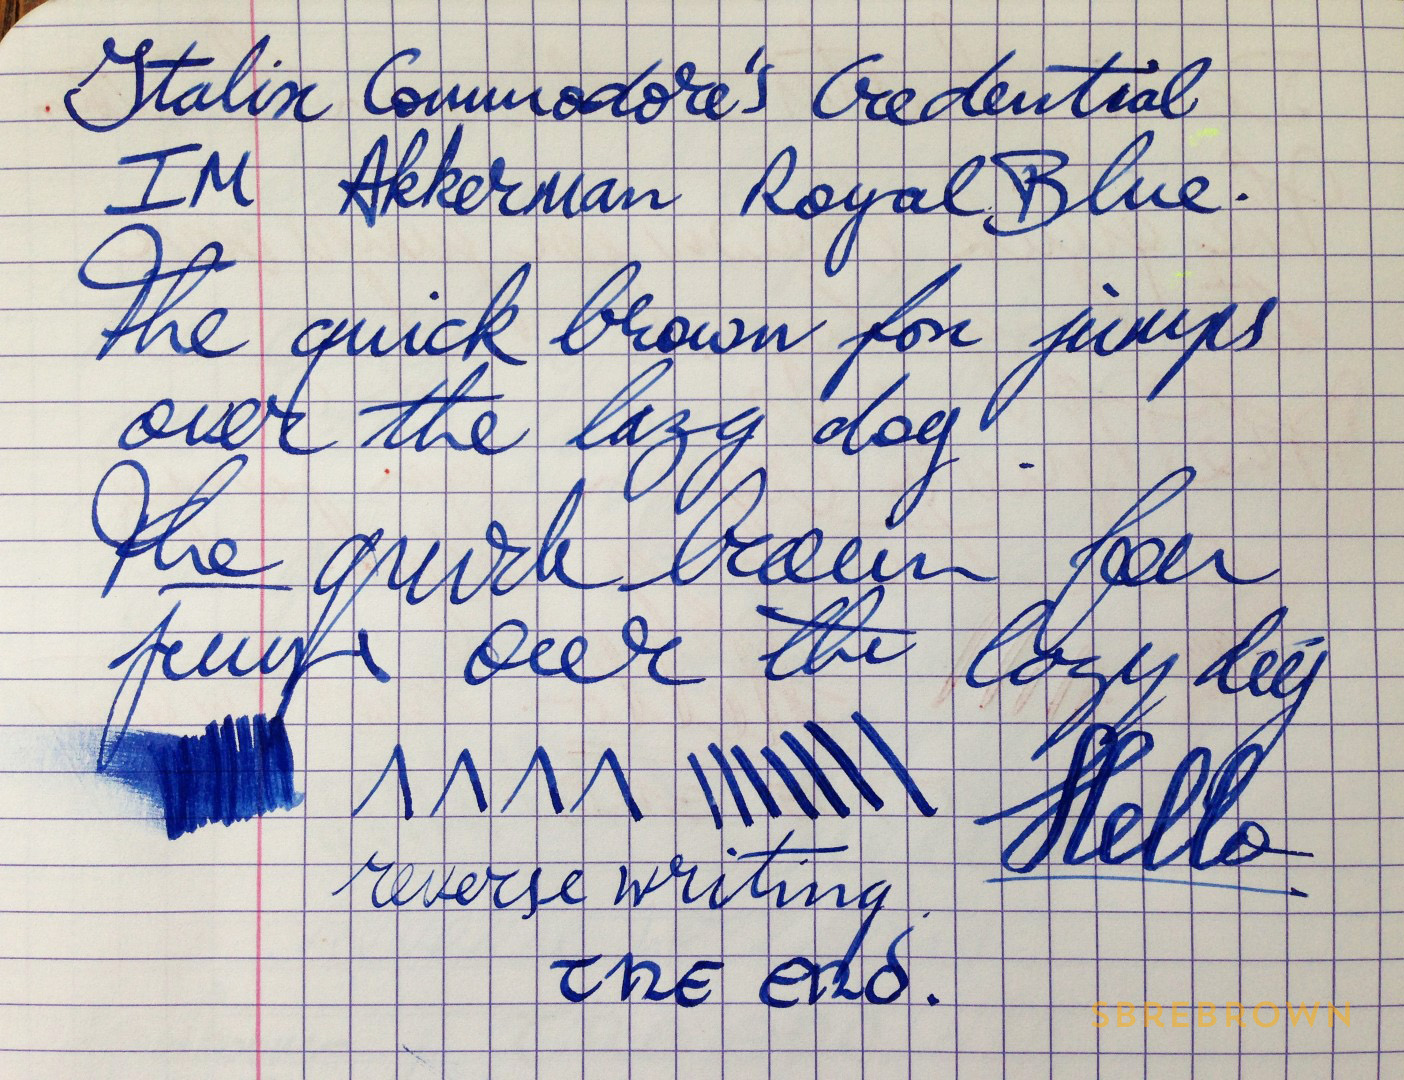 Italix Commodore's Credential
IM Akkerman Royal Blue.
The quick brown fox jumps
over the lazy dog.
The quick brown fox
jumps over the lazy dog
Hello
reverse writing.
THE END.
SBREBROWN